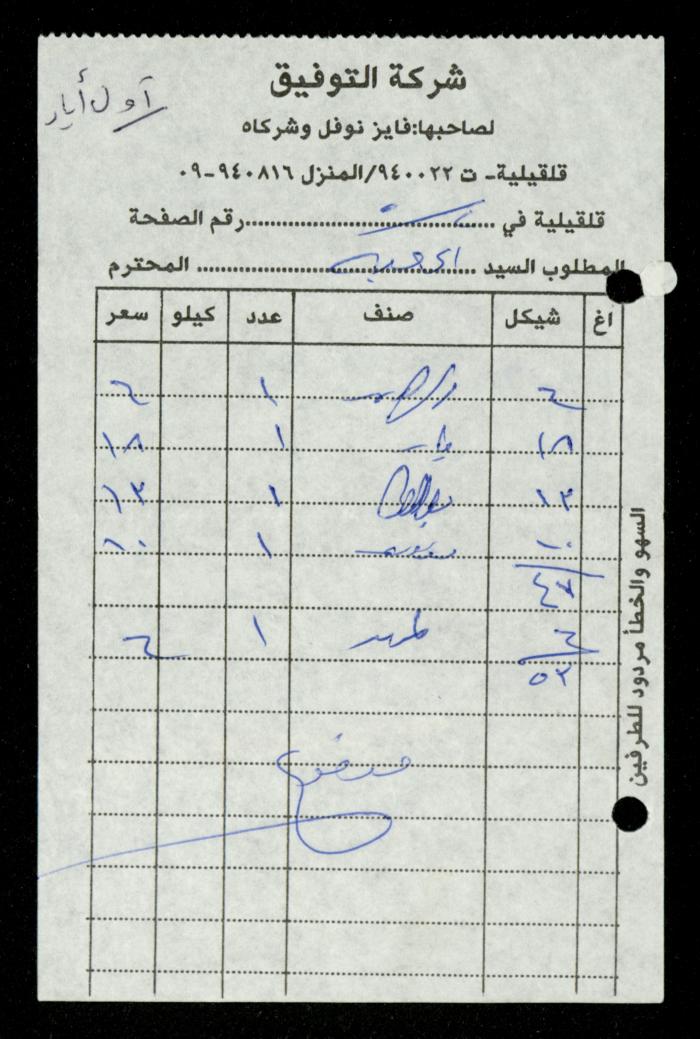 شركة التوفيق
أول أيار
لصاحبها:فايز نوفل وشركاه
قلقيلية- ت ٩٤٠٠٢٢/المنزل ٩٤٠٨١٦-٠٩
قلقيلية في .......... رقم الصفحة
المطلوب السيد .......... المحترم
اغ شيكل صنف عدد كيلو سعر
٤ ١ ٤
١٨ ١ ١٨
١٣ ١ ١٣
١٠ ١ ١٠
٤٧
٤ ١ ٤
٥٢
مدفوع
السهو والخطأ مردود للطرفين